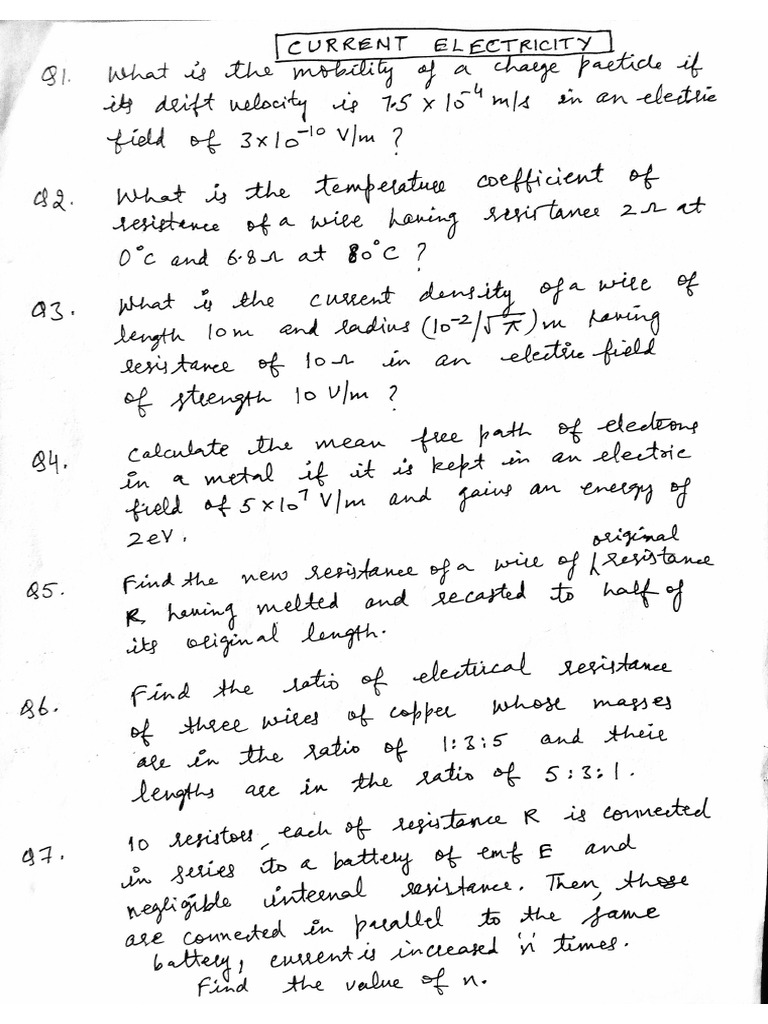 CURRENT ELECTRICITY
Q1. What is the mobility of a charge particle if
its drift velocity is 7.5 × 10⁻⁴ m/s in an electric
field of 3×10⁻¹⁰ V/m ?
Q2. What is the temperature coefficient of
resistance of a wire having resistance 2Ω at
0°C and 6.8Ω at 80°C ?
Q3. What is the current density of a wire of
length 10m and radius (10⁻²/√π) m having
resistance of 10Ω in an electric field
of strength 10 V/m ?
Q4. Calculate the mean free path of electrons
in a metal if it is kept in an electric
field of 5×10⁷ V/m and gains an energy of
2eV.
Q5. Find the new resistance of a wire of original resistance
R, having melted and recasted to half of
its original length.
Q6. Find the ratio of electrical resistance
of three wires of copper whose masses
are in the ratio of 1:3:5 and their
lengths are in the ratio of 5:3:1.
Q7. 10 resistors, each of resistance R is connected
in series to a battery of emf E and
negligible internal resistance. Then, those
are connected in parallel to the same
battery, current is increased 'n' times.
Find the value of n.